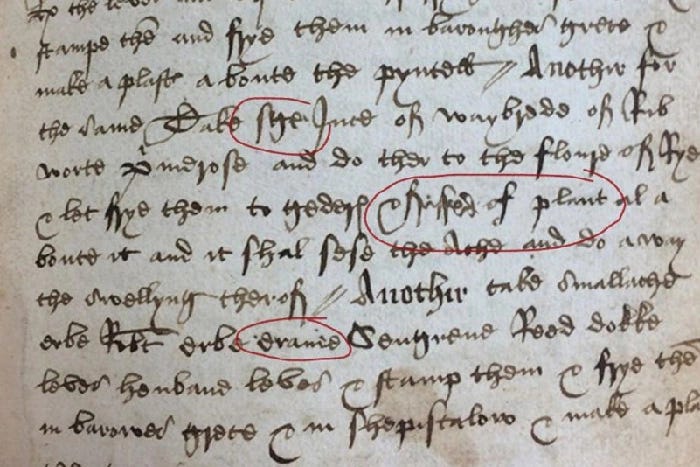 stampe thē and frye them in baroughes grece &
make a plast a boute the pyntell // Another for
the same Take the Juce off waybrede off Rib
worte and do ther to the floure off Rye
& let frye them to geder & of plant al a
boute it and it shal sese the Ache and do away
the swellyng theroff // Another take smallache
erbe Robt erbe Sengrene Reed dokke
leves henbane leves & stamp them & frye thē
in barowes grece & in shepistalow & make a pla